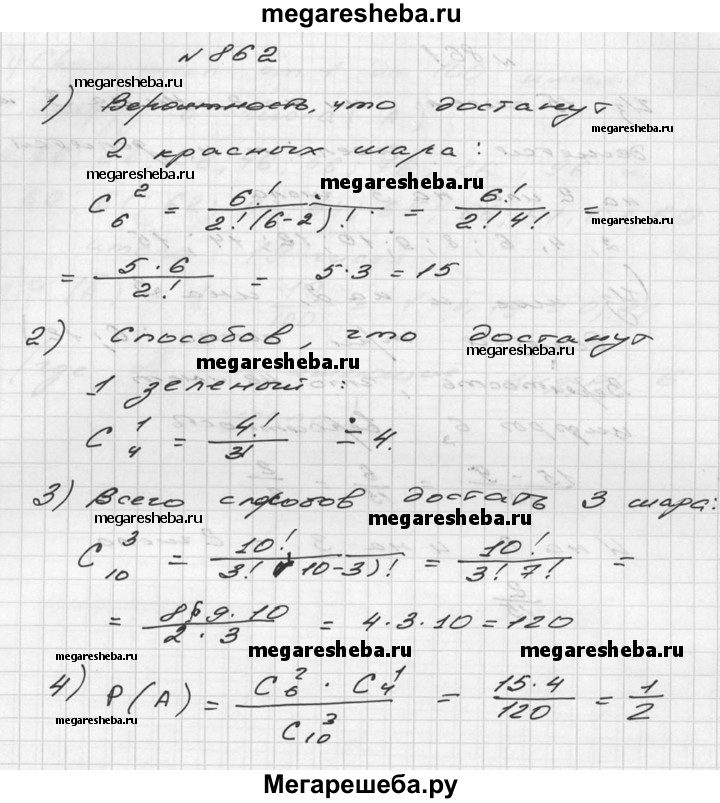 megaresheba.ru
№ 862
megaresheba.ru
1) Вероятность, что достанут
megaresheba.ru
2 красных шара:
megaresheba.ru
megaresheba.ru
C₆² = 6! / 2!(6-2)! = 6! / 2!4! =
megaresheba.ru
= 5·6 / 2! = 5·3 = 15
2) Способов, что достанут
megaresheba.ru
megaresheba.ru
1 зеленый:
megaresheba.ru
C₄¹ = 4! / 3! = 4.
3) Всего способов достать 3 шара:
megaresheba.ru
megaresheba.ru
C₁₀³ = 10! / 3!(10-3)! = 10! / 3!7! =
= 8·9·10 / 2·3 = 4·3·10 = 120
megaresheba.ru
megaresheba.ru
megaresheba.ru
4) P(A) = C₆² · C₄¹ / C₁₀³ = 15·4 / 120 = 1/2
megaresheba.ru
Мегарешеба.ру